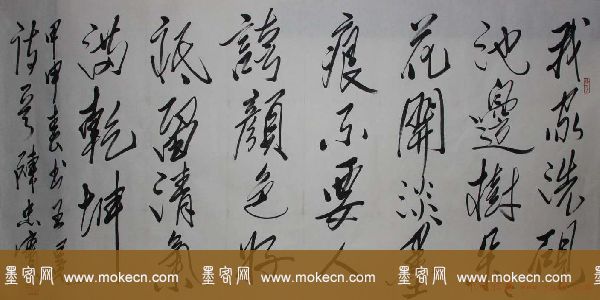 我家洗硯
池邊樹朵
花開淡墨
痕不要人
誇顏色好
祇留清氣
滿乾坤
甲申春书王冕
詩
墨客网 www.mokecn.com 墨客网 www.mokecn.com 墨客网 www.mokecn.com